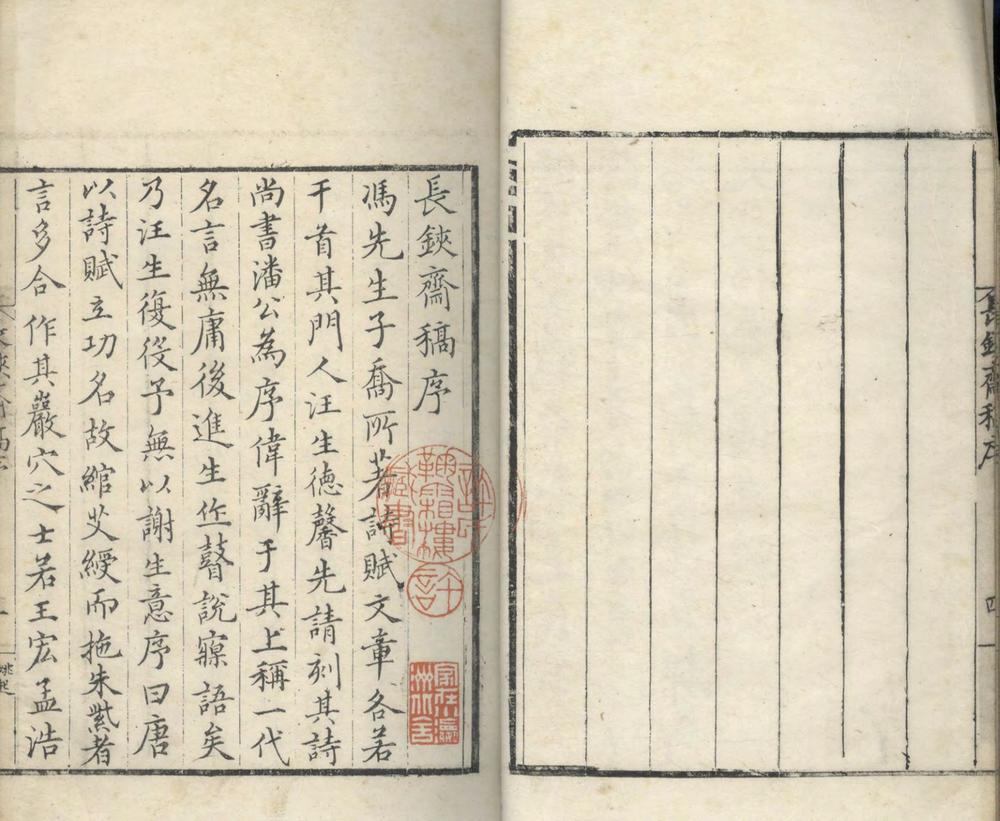 長鋏齋稿序
四
長鋏齋稿序
馮先生子喬所著詩賦文章各若
干首其門人汪生德馨先請刻其詩
尚書潘公為序偉辭于其上稱一代
名言無庸後進生迩瞽說寱語矣
乃汪生復役予無以謝生意序曰唐
以詩賦立功名故綰艾綬而拖朱紫者
言多合作其巖穴之士若王宏孟浩
家在瀛洲